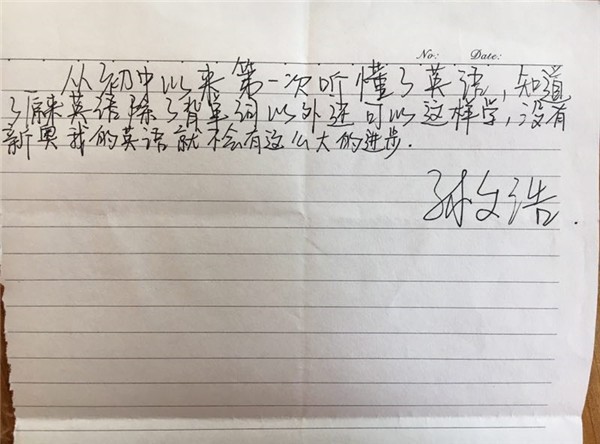 No: Date:
从初中以来第一次听懂了英语,知道
了原来英语除了背单词以外还可以这样学,没有
新奥我的英语就不会有这么大的进步.
孙文浩.